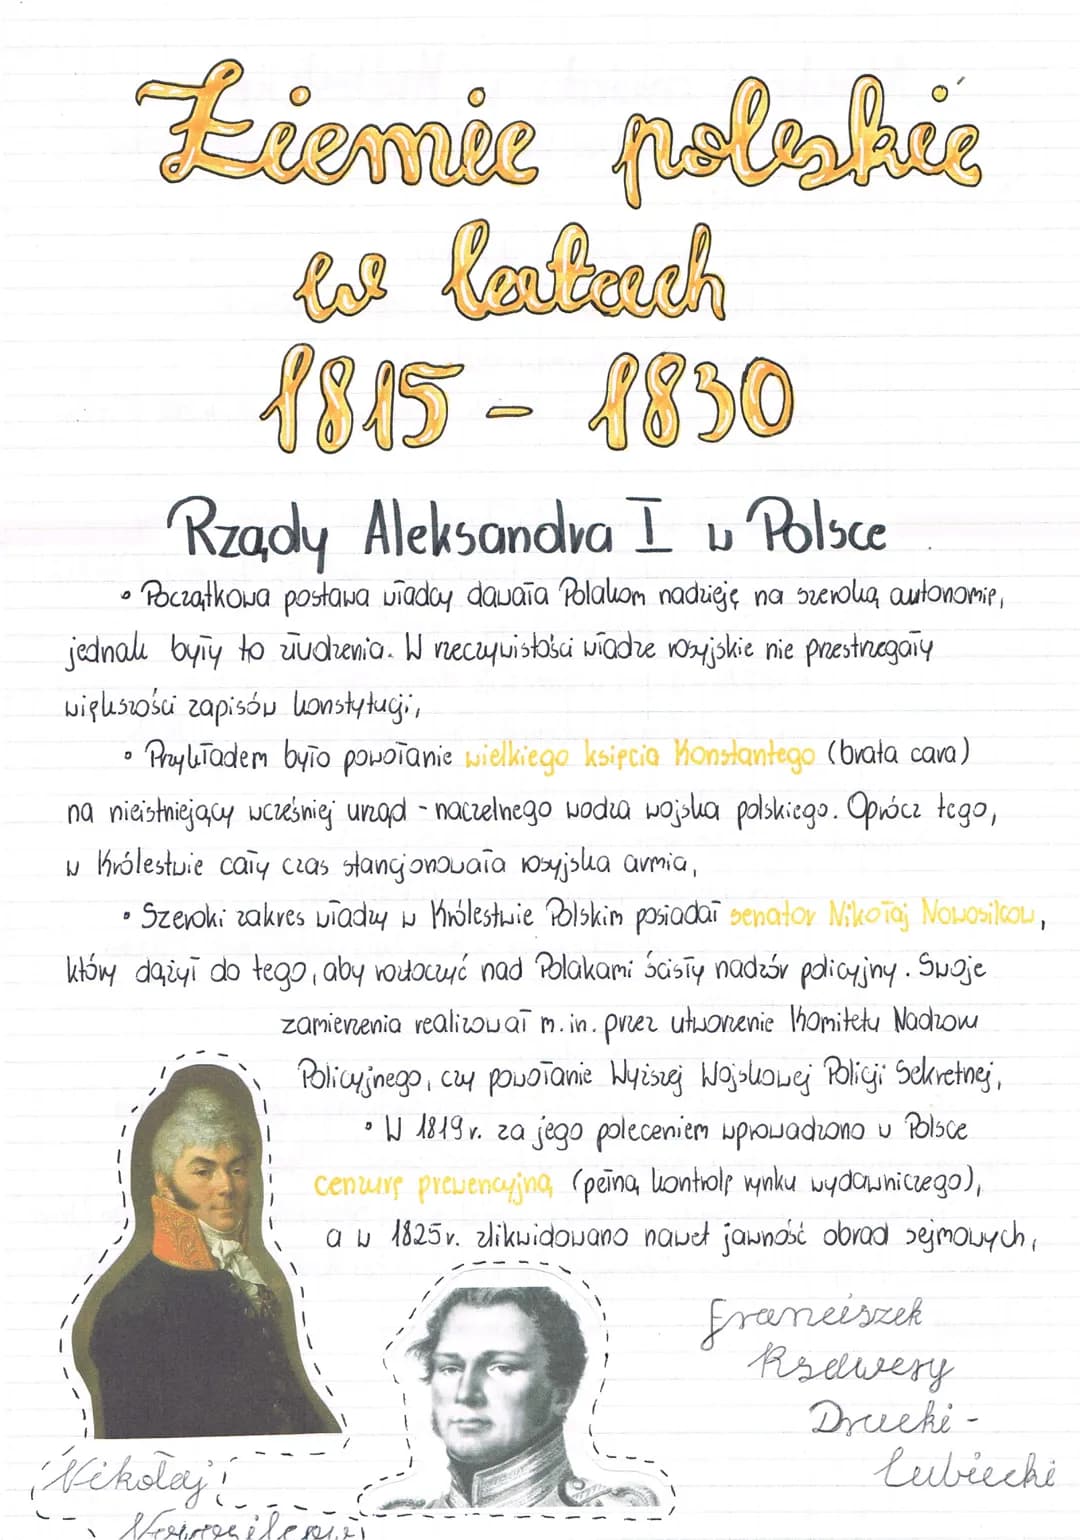 Ziemie polskie
w latach
1815 - 1830
Rządy Aleksandra I w Polsce
• Początkowa postawa władcy dawała Polakom nadzieję na szeroką autonomię,
jednak były to złudzenia. W rzeczywistości władze rosyjskie nie przestrzegały
większości zapisów konstytucji,
• Przykładem było powołanie wielkiego księcia Konstantego (brata cara)
na nieistniejący wcześniej urząd - naczelnego wodza wojska polskiego. Oprócz tego,
w Królestwie cały czas stacjonowała rosyjska armia,
• Szeroki zakres władzy w Królestwie Polskim posiadał senator Nikołaj Nowosilcow,
który dążył do tego, aby roztoczyć nad Polakami ścisły nadzór policyjny. Swoje
zamierzenia realizował m.in. przez utworzenie Komitetu Nadzoru
Policyjnego, czy powołanie Wyższej Wojskowej Policji Sekretnej,
• W 1819 r. za jego poleceniem wprowadzono w Polsce
cenzurę prewencyjną (pełną kontrolę rynku wydawniczego),
a w 1825 r. zlikwidowano nawet jawność obrad sejmowych,
Franciszek
Ksawery
Drucki -
Lubiecki
Nikołaj
Nowosilcow